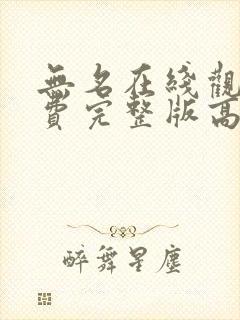 無名在綫觀
費完整版高
醉舞星塵